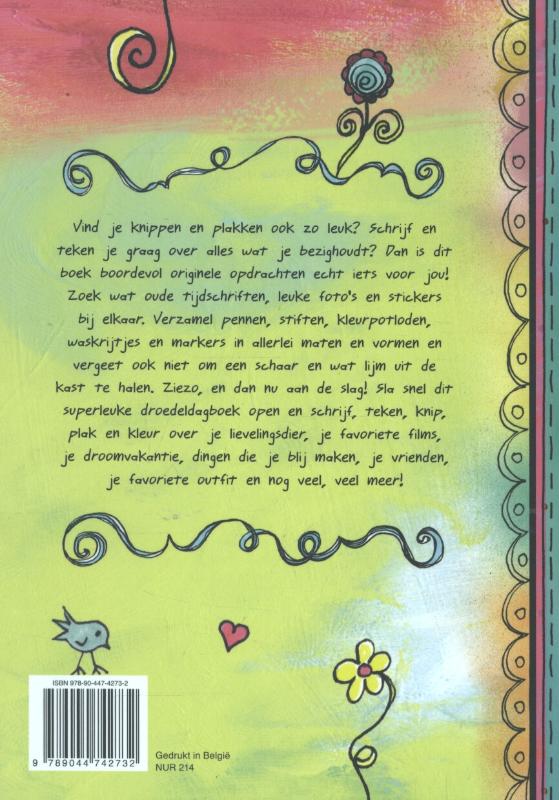 Vind je knippen en plakken ook zo leuk? Schrijf en
teken je graag over alles wat je bezighoudt? Dan is dit
boek boordevol originele opdrachten echt iets voor jou!
Zoek wat oude tijdschriften, leuke foto's en stickers
bij elkaar. Verzamel pennen, stiften, kleurpotloden,
waskrijtjes en markers in allerlei maten en vormen en
vergeet ook niet om een schaar en wat lijm uit de
kast te halen. Ziezo, en dan nu aan de slag! Sla snel dit
superleuke droedeldagboek open en schrijf, teken, knip,
plak en kleur over je lievelingsdier, je favoriete films,
je droomvakantie, dingen die je blij maken, je vrienden,
je favoriete outfit en nog veel, veel meer!
ISBN 978-90-447-4273-2
9 789044 742732
Gedrukt in België
NUR 214